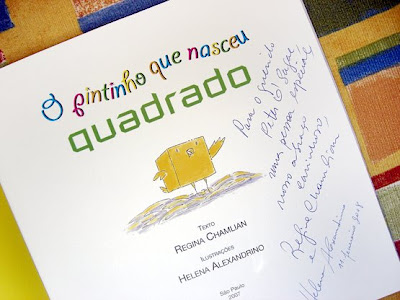 O pintinho que nasceu
quadrado
TEXTO
REGINA CHAMLIAN
ILUSTRAÇÕES
HELENA ALEXANDRINO
São Paulo
2007
Para o querido
Peter O Sagae
uma pessoa especial
nosso abraço
carinhoso,
Regina Chamlian
e
Helena Alexandrino